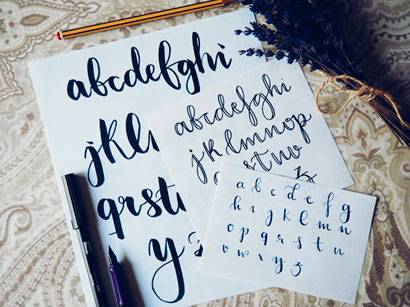 abcdefghi
jkl
qrst
yz
abcdefghi
jklmnop
stuv
z
abcdefg
hijklmn
opqrstu
vwxyz